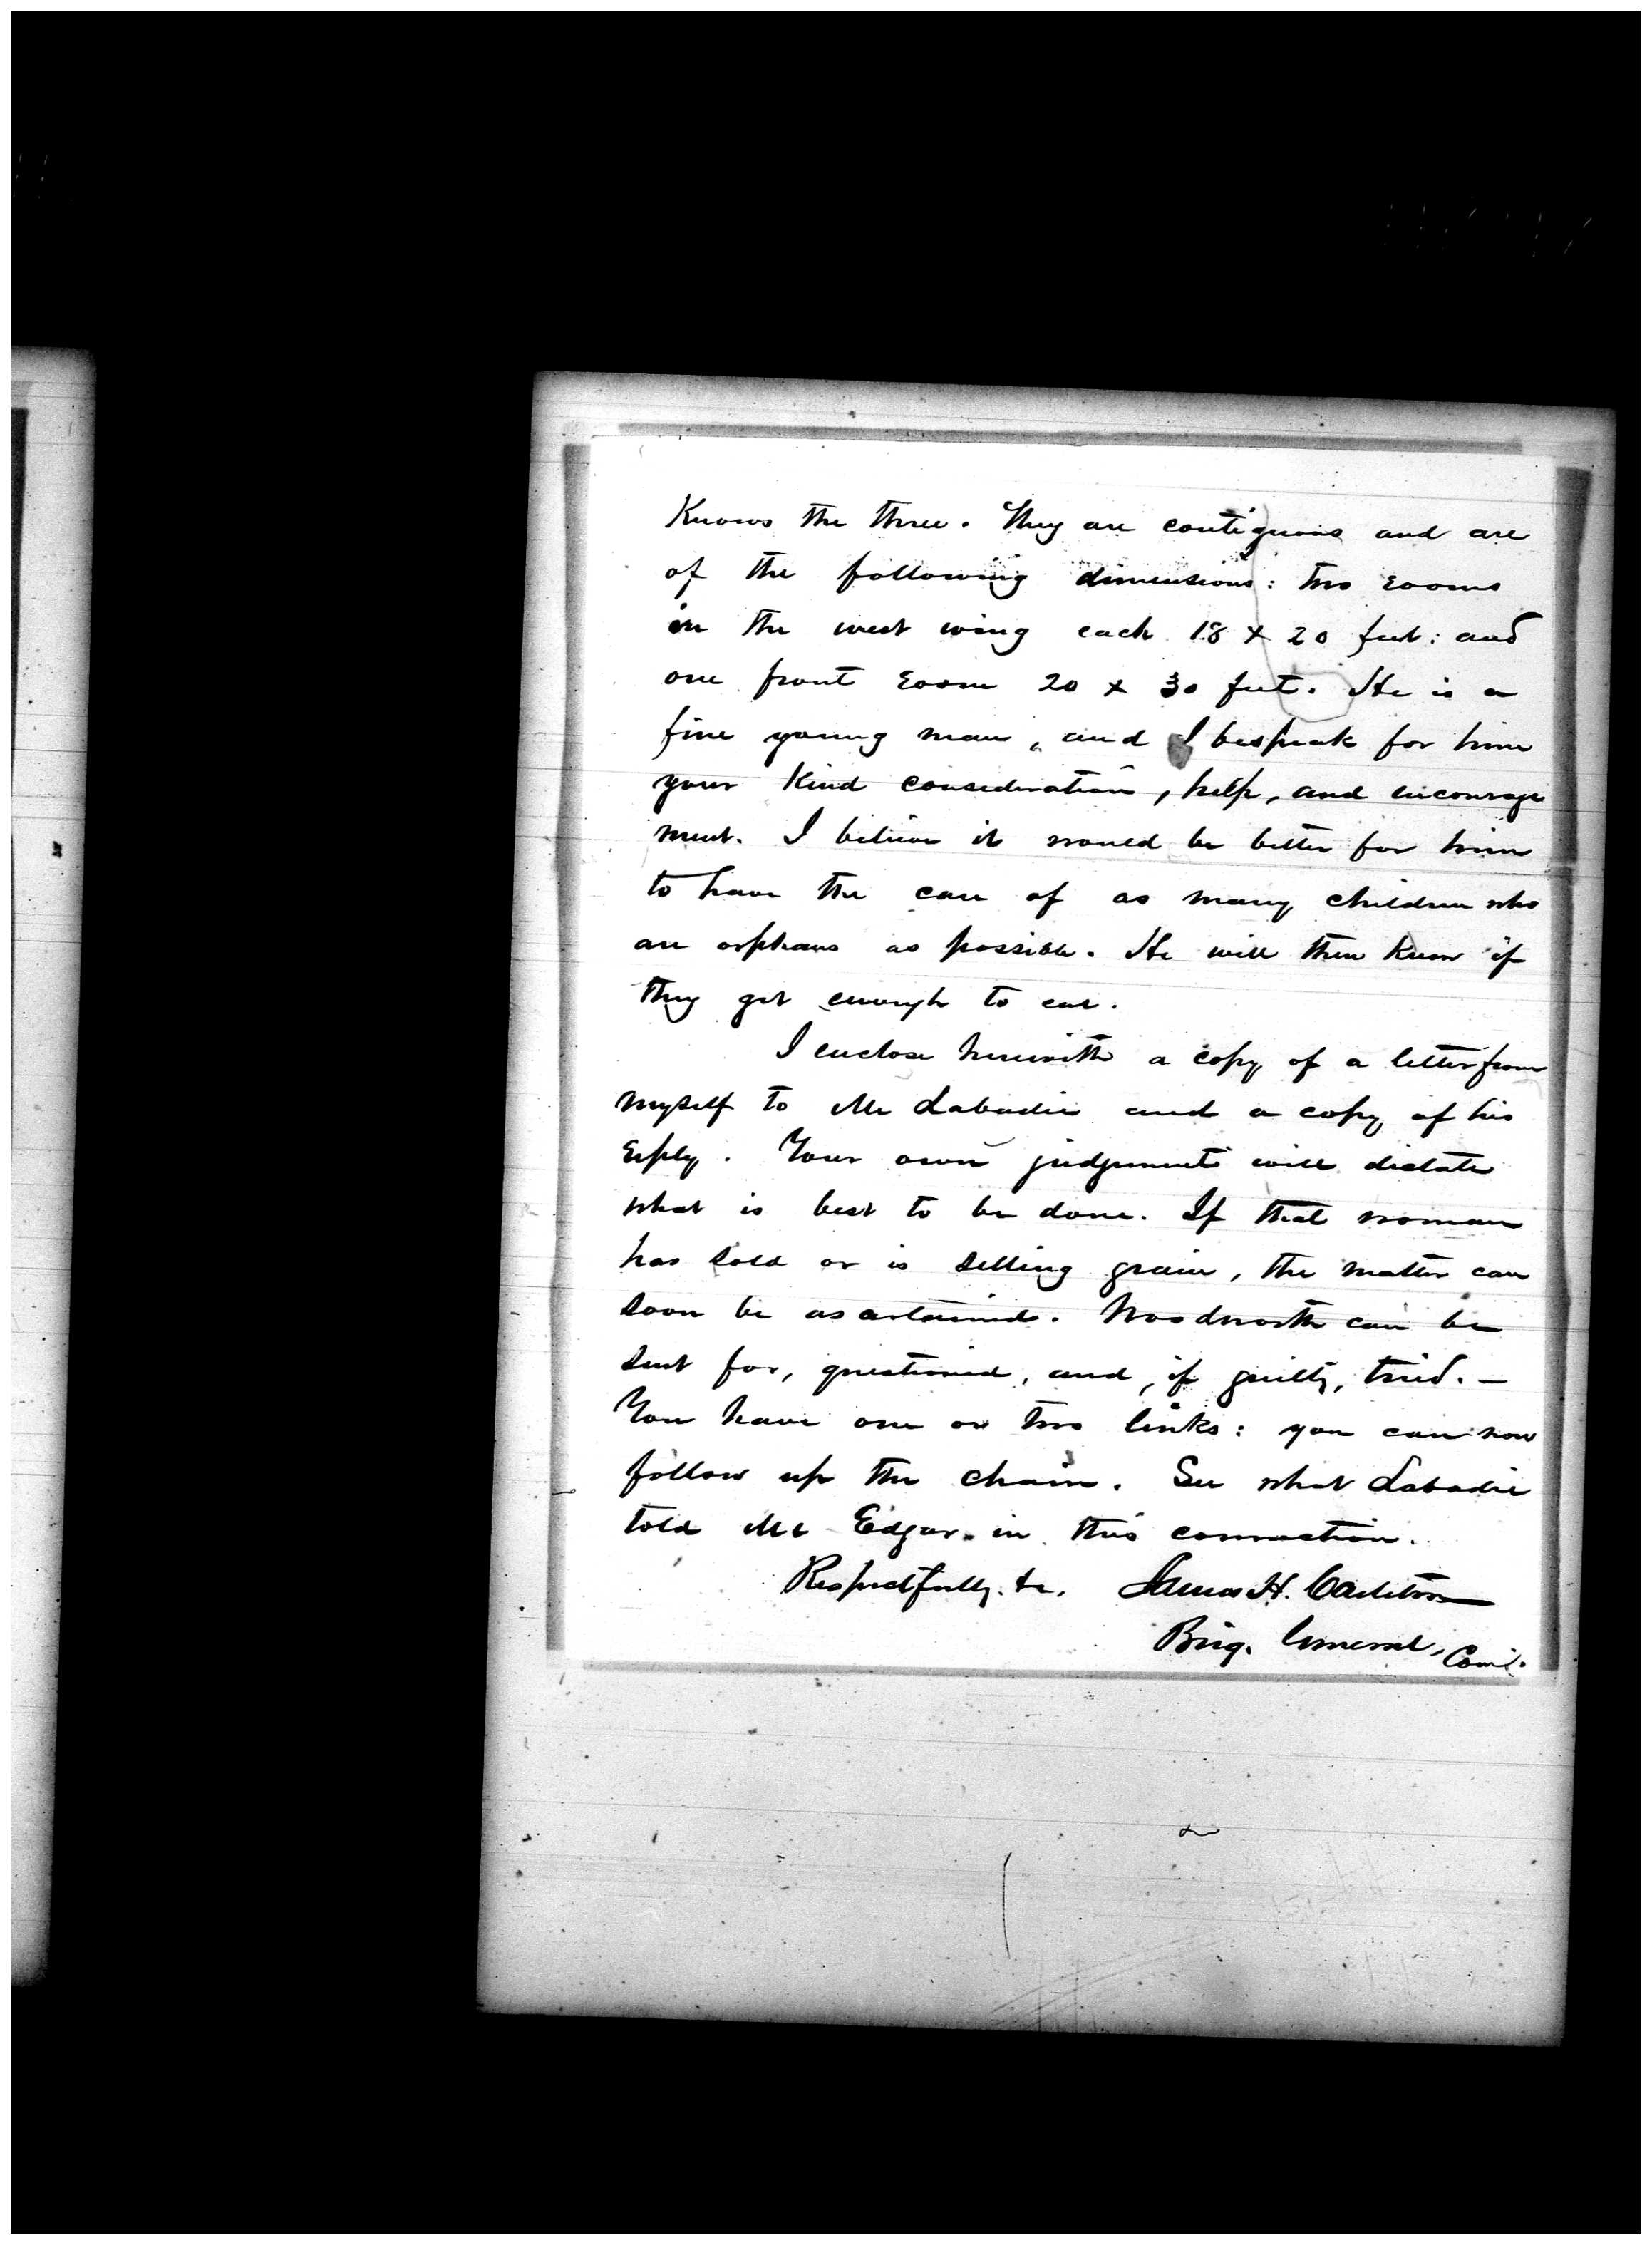 Knows the three. They are contiguous and are
of the following dimensions: two rooms
in the west wing each 18 x 20 feet: and
one front room 20 x 30 feet. He is a
fine young man, and I bespeak for him
your kind consideration, help, and encourage
ment. I believe it would be better for him
to have the care of as many children who
are orphans as possible. He will then know if
they get enough to eat.
I enclose herewith a copy of a letter from
myself to Mr Labadie and a copy of his
reply. Your own judgment will dictate
what is best to be done. If that woman
has sold or is selling grain, the matter can
soon be ascertained. Woodworth can be
sent for, questioned, and, if guilty, tried. —
You have one or two links: you can now
follow up the chain. See what Labadie
told Mr Edgar in this connection.
Respectfully &c. James H. Carleton
Brig. General, Comd.